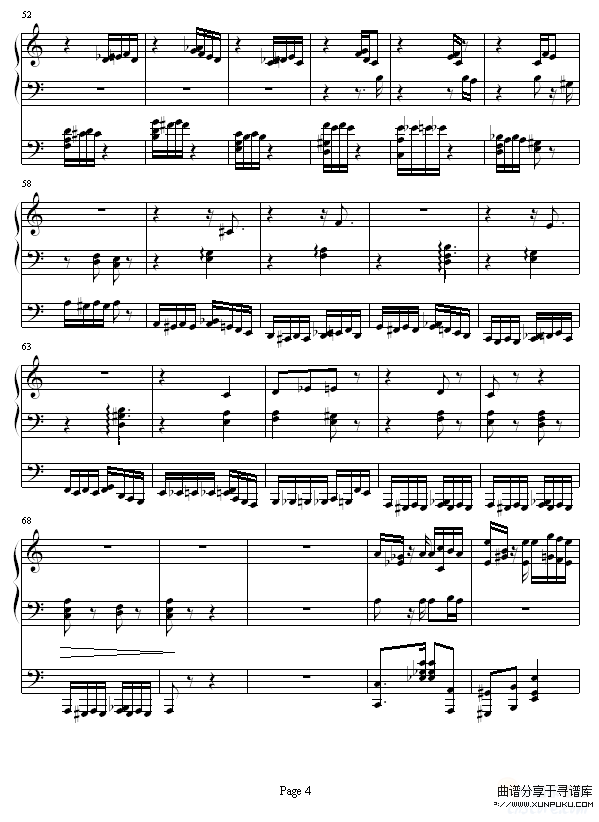 52
58
63
68
Page 4
曲谱分享于寻谱库
WWW.XUNPUKU.COM